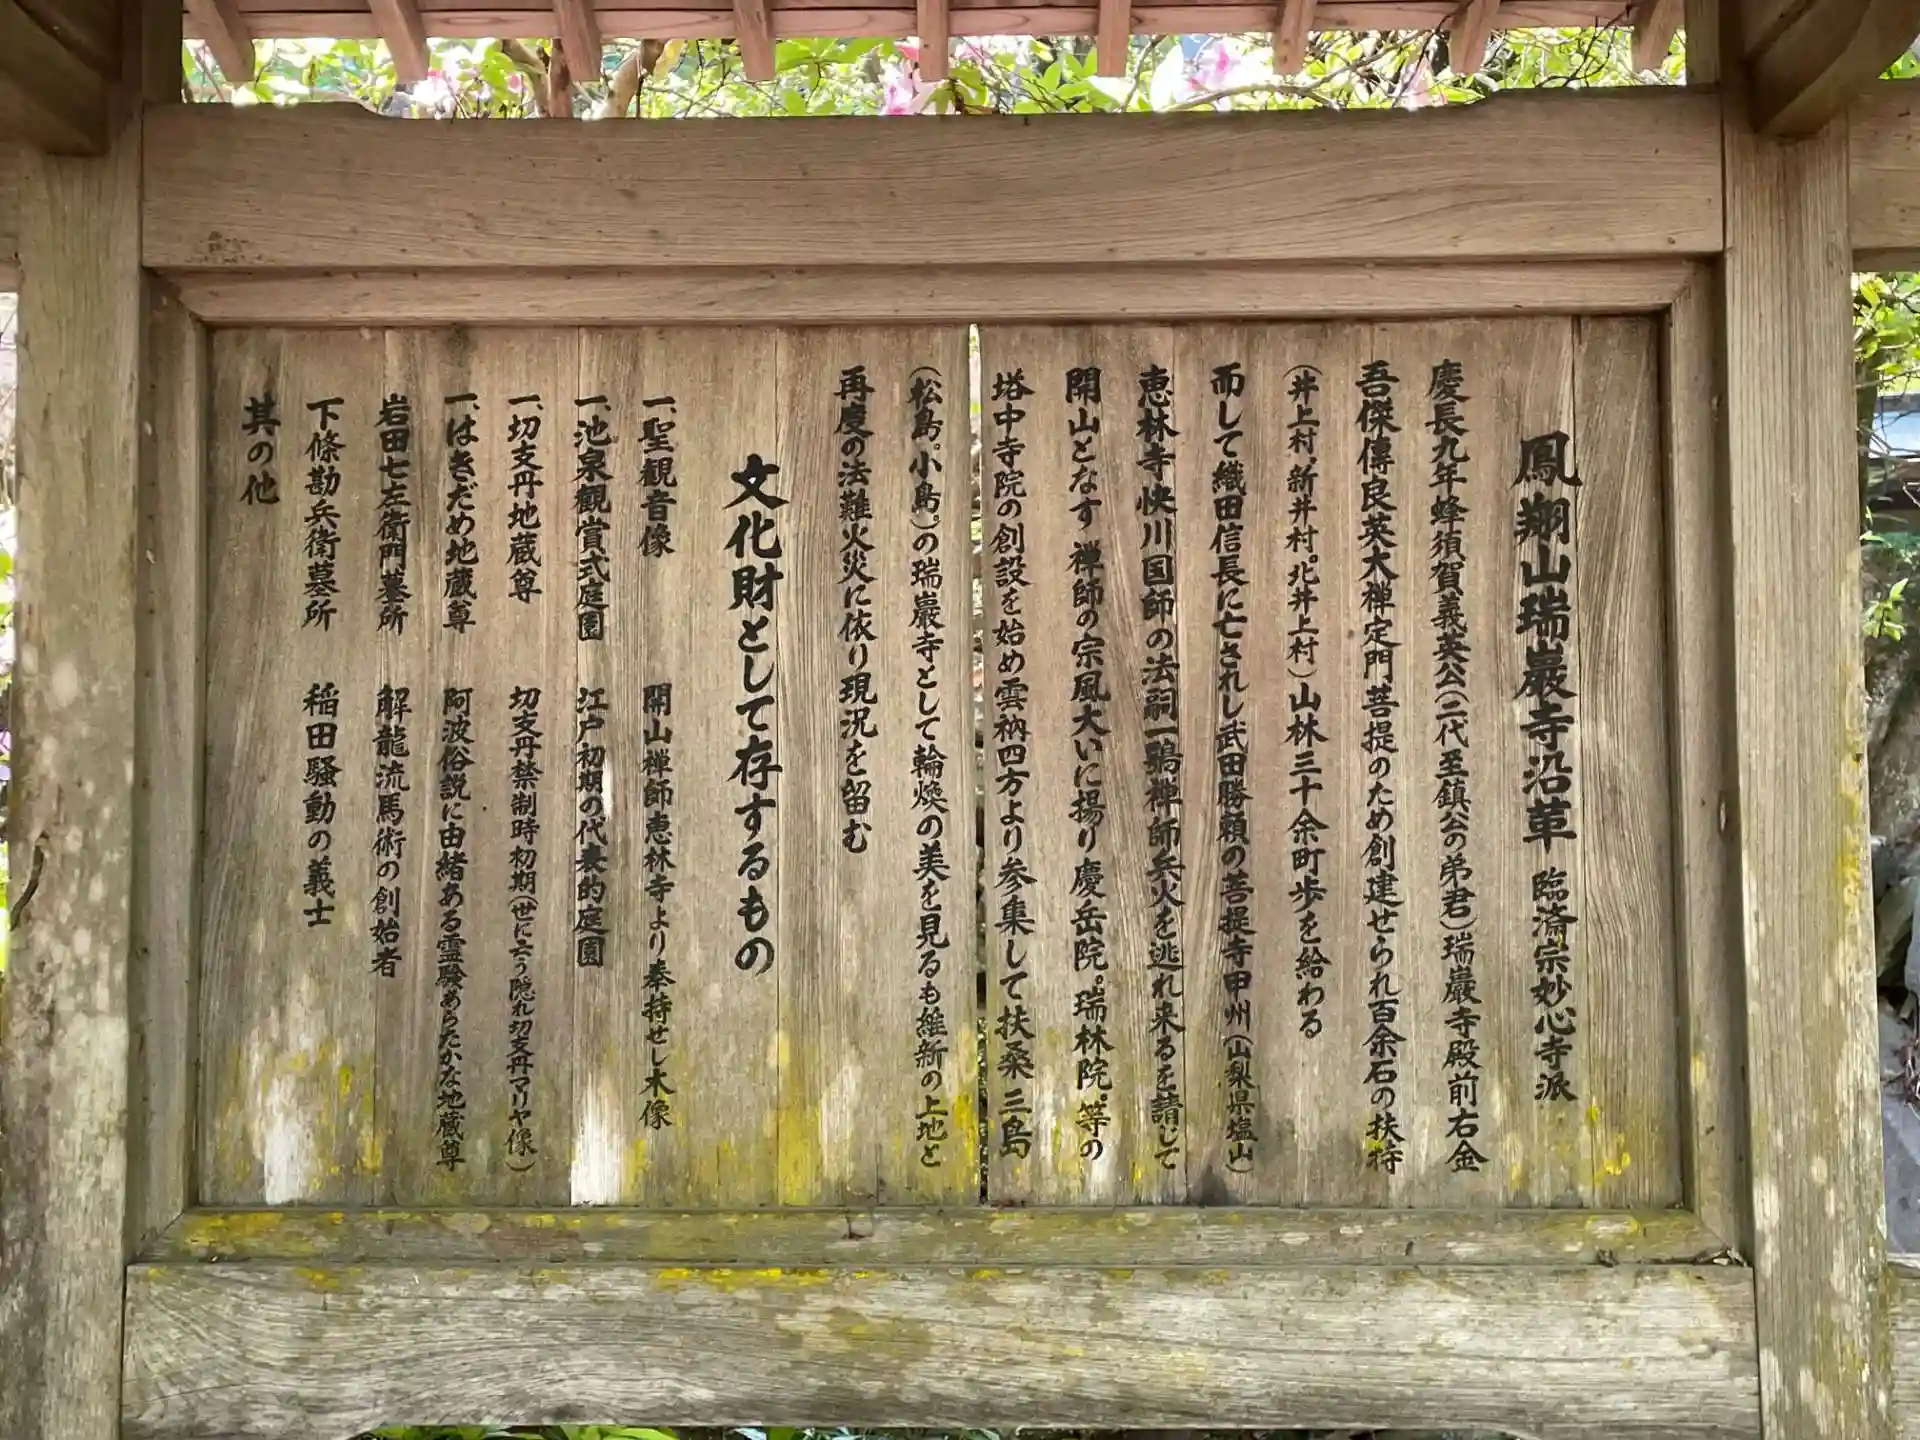 鳳翔山瑞巖寺沿革 臨済宗妙心寺派
慶長九年蜂須賀義英公(二代至鎮公の弟君)瑞巖寺殿前右金
吾傑傳良英大禅定門菩提のため創建せられ百余石の扶持
(井上村、新井村。北井上村)山林三十余町歩を給わる
而して織田信長に亡されし武田勝頼の菩提寺甲州(山梨県塩山)
恵林寺快川国師の法嗣一鶚禅師兵火を逃れ来るを請じて
開山となす 禅師の宗風大いに揚り慶岳院。瑞林院。等の
塔中寺院の創設を始め雲衲四方より参集して扶桑三島
(松島。小島。)の瑞巖寺として輪煥の美を見るも維新の上地と
再度の法難火災に依り現況を留む
文化財として存するもの
一、聖観音像 開山禅師恵林寺より奉持せし木像
一、池泉観賞式庭園 江戸初期の代表的庭園
一、切支丹地蔵尊 切支丹禁制時初期(世に云う隠れ切支丹マリヤ像)
一、はきだめ地蔵尊 阿波俗説に由緒ある霊験あらたかな地蔵尊
岩田七左衛門墓所 解龍流馬術の創始者
下條勘兵衛墓所 稲田騒動の義士
其の他